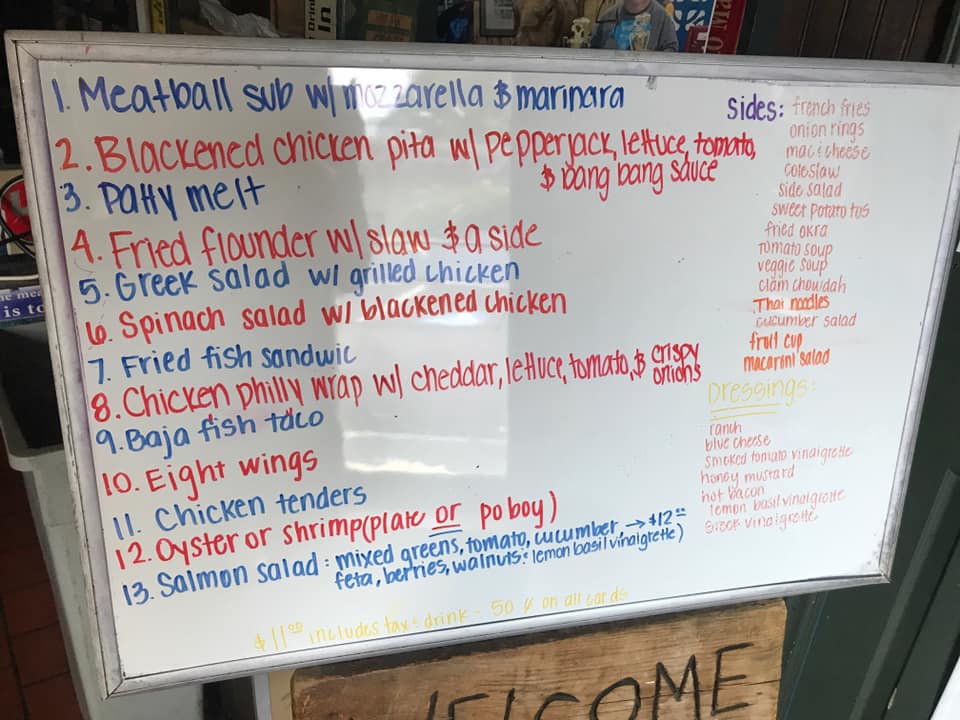 1. Meatball sub w/ mozzarella & marinara
2. Blackened chicken pita w/ pepperjack, lettuce, tomato,
& bang bang sauce
3. Patty melt
4. Fried flounder w/ slaw & a side
5. Greek salad w/ grilled chicken
6. Spinach salad w/ blackened chicken
7. Fried fish sandwic
8. Chicken philly wrap w/ cheddar, lettuce, tomato, & crispy
onions
9. Baja fish taco
10. Eight wings
11. Chicken tenders
12. Oyster or shrimp (plate or po boy)
13. Salmon salad: mixed greens, tomato, cucumber, → $12.00
feta, berries, walnuts & lemon basil vinaigrette)
$11.00 includes tax & drink - 50¢ on all cards
Sides: french fries
onion rings
mac & cheese
coleslaw
side salad
sweet potato tots
fried okra
tomato soup
veggie soup
clam chowdah
Thai noodles
cucumber salad
fruit cup
macaroni salad
Dressings:
ranch
blue cheese
smoked tomato vinaigrette
honey mustard
hot bacon
lemon basil vinaigrette
Greek vinaigrette
WELCOME
is to